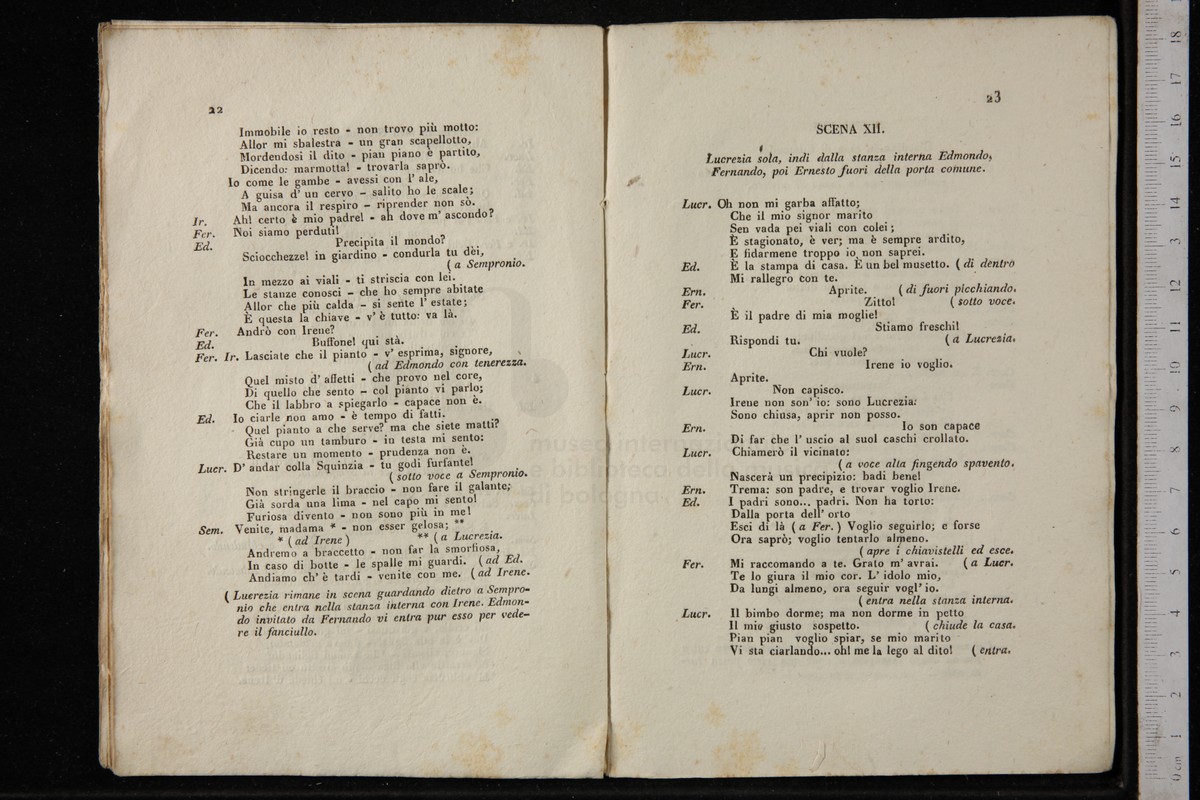 22
Immobile io resto - non trovo più motto:
Allor mi sbalestra - un gran scapellotto,
Mordendosi il dito - pian piano è partito,
Dicendo: marmotta! - trovarla saprò.
Io come le gambe - avessi con l' ale,
A guisa d' un cervo - salito ho le scale;
Ma ancora il respiro - riprender non sò.
Ir. Ah! certo è mio padre! - ah dove m' ascondo?
Fer. Noi siamo perduti!
Ed. Precipita il mondo?
Sciocchezze! in giardino - condurla tu dèi,
( a Sempronio.
In mezzo ai viali - ti striscia con lei.
Le stanze conosci - che ho sempre abitate
Allor che più calda - si sente l' estate;
È questa la chiave - v' è tutto: va là.
Fer. Andrò con Irene?
Ed. Buffone! qui stà.
Fer. Ir. Lasciate che il pianto - v' esprima, signore,
( ad Edmondo con tenerezza.
Quel misto d' affetti - che provo nel core,
Di quello che sento - col pianto vi parlo;
Che il labbro a spiegarlo - capace non è.
Ed. Io ciarle non amo - è tempo di fatti.
Quel pianto a che serve? ma che siete matti?
Già cupo un tamburo - in testa mi sento:
Restare un momento - prudenza non è.
Lucr. D' andar colla Squinzia - tu godi furfante!
( sotto voce a Sempronio.
Non stringerle il braccio - non fare il galante;
Già sorda una lima - nel capo mi sento!
Furiosa divento - non sono più in me!
Sem. Venite, madama * - non esser gelosa; **
* ( ad Irene ) ** ( a Lucrezia.
Andremo a braccetto - non far la smorfiosa,
In caso di botte - le spalle mi guardi. ( ad Ed.
Andiamo ch' è tardi - venite con me. ( ad Irene.
( Lucrezia rimane in scena guardando dietro a Sempro-
nio che entra nella stanza interna con Irene. Edmon-
do invitato da Fernando vi entra pur esso per vede-
re il fanciullo.
23
SCENA XII.
Lucrezia sola, indi dalla stanza interna Edmondo,
Fernando, poi Ernesto fuori della porta comune.
Lucr. Oh non mi garba affatto;
Che il mio signor marito
Sen vada pei viali con colei;
È stagionato, è ver; ma è sempre ardito,
E fidarmene troppo io non saprei.
Ed. È la stampa di casa. È un bel musetto. ( di dentro
Mi rallegro con te.
Ern. Aprite. ( di fuori picchiando.
Fer. Zitto! ( sotto voce.
È il padre di mia moglie!
Ed. Stiamo freschi!
Rispondi tu. ( a Lucrezia.
Lucr. Chi vuole?
Ern. Irene io voglio.
Aprite.
Lucr. Non capisco.
Irene non son' io: sono Lucrezia:
Sono chiusa, aprir non posso.
Ern. Io son capace
Di far che l' uscio al suol caschi crollato.
Lucr. Chiamerò il vicinato:
( a voce alta fingendo spavento.
Nascerà un precipizio: badi bene!
Ern. Trema: son padre, e trovar voglio Irene.
Ed. I padri sono... padri. Non ha torto:
Dalla porta dell' orto
Esci di là ( a Fer. ) Voglio seguirlo; e forse
Ora saprò; voglio tentarlo almeno.
( apre i chiavistelli ed esce.
Fer. Mi raccomando a te. Grato m' avrai. ( a Lucr.
Te lo giura il mio cor. L' idolo mio,
Da lungi almeno, ora seguir vogl' io.
( entra nella stanza interna.
Lucr. Il bimbo dorme; ma non dorme in petto
Il mio giusto sospetto. ( chiude la casa.
Pian pian voglio spiar, se mio marito
Vi sta ciarlando... oh! me la lego al dito! ( entra.
museo internazio
e biblioteca della musica
di bologna
0 cm 1 2 3 4 5 6 7 8 9 10 11 12 13 14 15 16 17 18